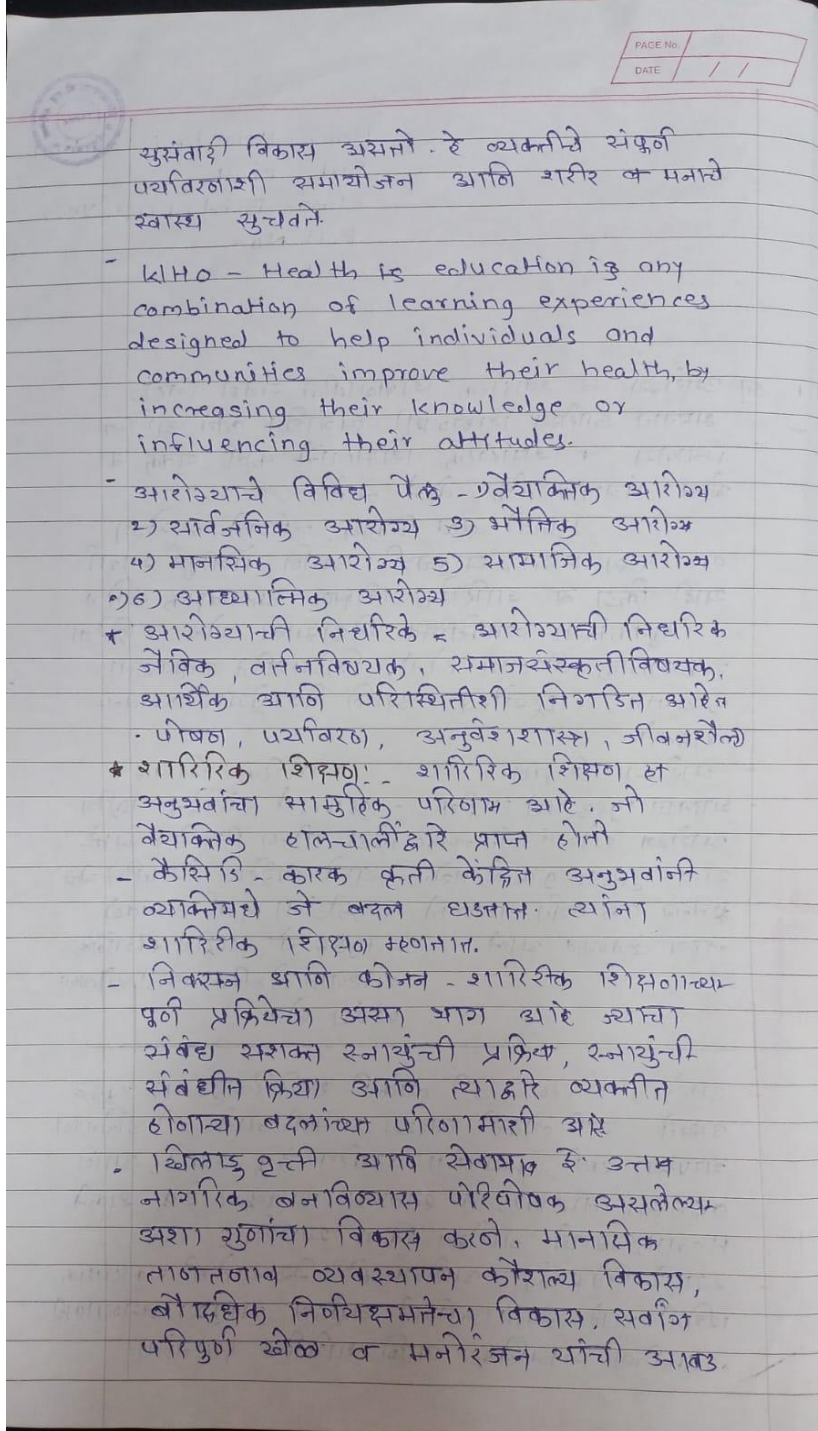 PAGE No.
DATE / /
सुसंवादी विकास असतो. हे व्यक्तीचे संपूर्ण
पर्यावरणाशी समायोजन आणि शरीर व मनाचे
स्वास्थ सुचवते.
- WHO - Health is education is any
combination of learning experiences
designed to help individuals and
communities improve their health, by
increasing their knowledge or
influencing their attitudes.
- आरोग्याचे विविध पैलु - १) वैयाक्तिक आरोग्य
२) सार्वजनिक आरोग्य ३) भौतिक आरोग्य
४) मानसिक आरोग्य 5) सामाजिक आरोग्य
६) आध्यात्मिक आरोग्य
* आरोग्याची निर्धारके - आरोग्याची निर्धारक
जैविक, वर्तनविषयक, समाजसंस्कृतीविषयक,
आर्थिक आणि परिस्थितीशी निगडित आहेत
. पोषण, पर्यावरण, अनुवंशशास्त्र, जीवनशैली
* शारिरिक शिक्षण:- शारिरिक शिक्षण हा
अनुभवांचा सामुहिक परिणाम आहे. जो
वैयाक्तिक हालचालींद्वारे प्राप्त होतो
- कैसिडि - कारक कृती केंद्रित अनुभवांनी
व्याक्तिमधे जे बदल घडतात. त्यांना
शारिरीक शिक्षण म्हणतात.
- निक्सन आणि कोजन - शारिरीक शिक्षणाच्या
पूर्ण प्रक्रियेचा असा भाग आहे ज्याचा
संबंध सशक्त स्नायुंची प्रक्रिया, स्नायुंची
संबंधीत क्रिया आणि त्याद्वारे व्यक्तीत
होणाऱ्या बदलांच्या परिणामाशी आहे
. खिलाडु वृत्ती आणि सेवाभाव इ. उत्तम
नागरिक बनविण्यास परिपोषक असलेल्या
अशा गुणांचा विकास करणे, मानसिक
ताणतणाव व्यवस्थापन कौशल्य विकास,
बौद्धिक निर्णयक्षमतेचा विकास, सर्वांग
परिपुर्ण खेळ व मनोरंजन यांची आवड